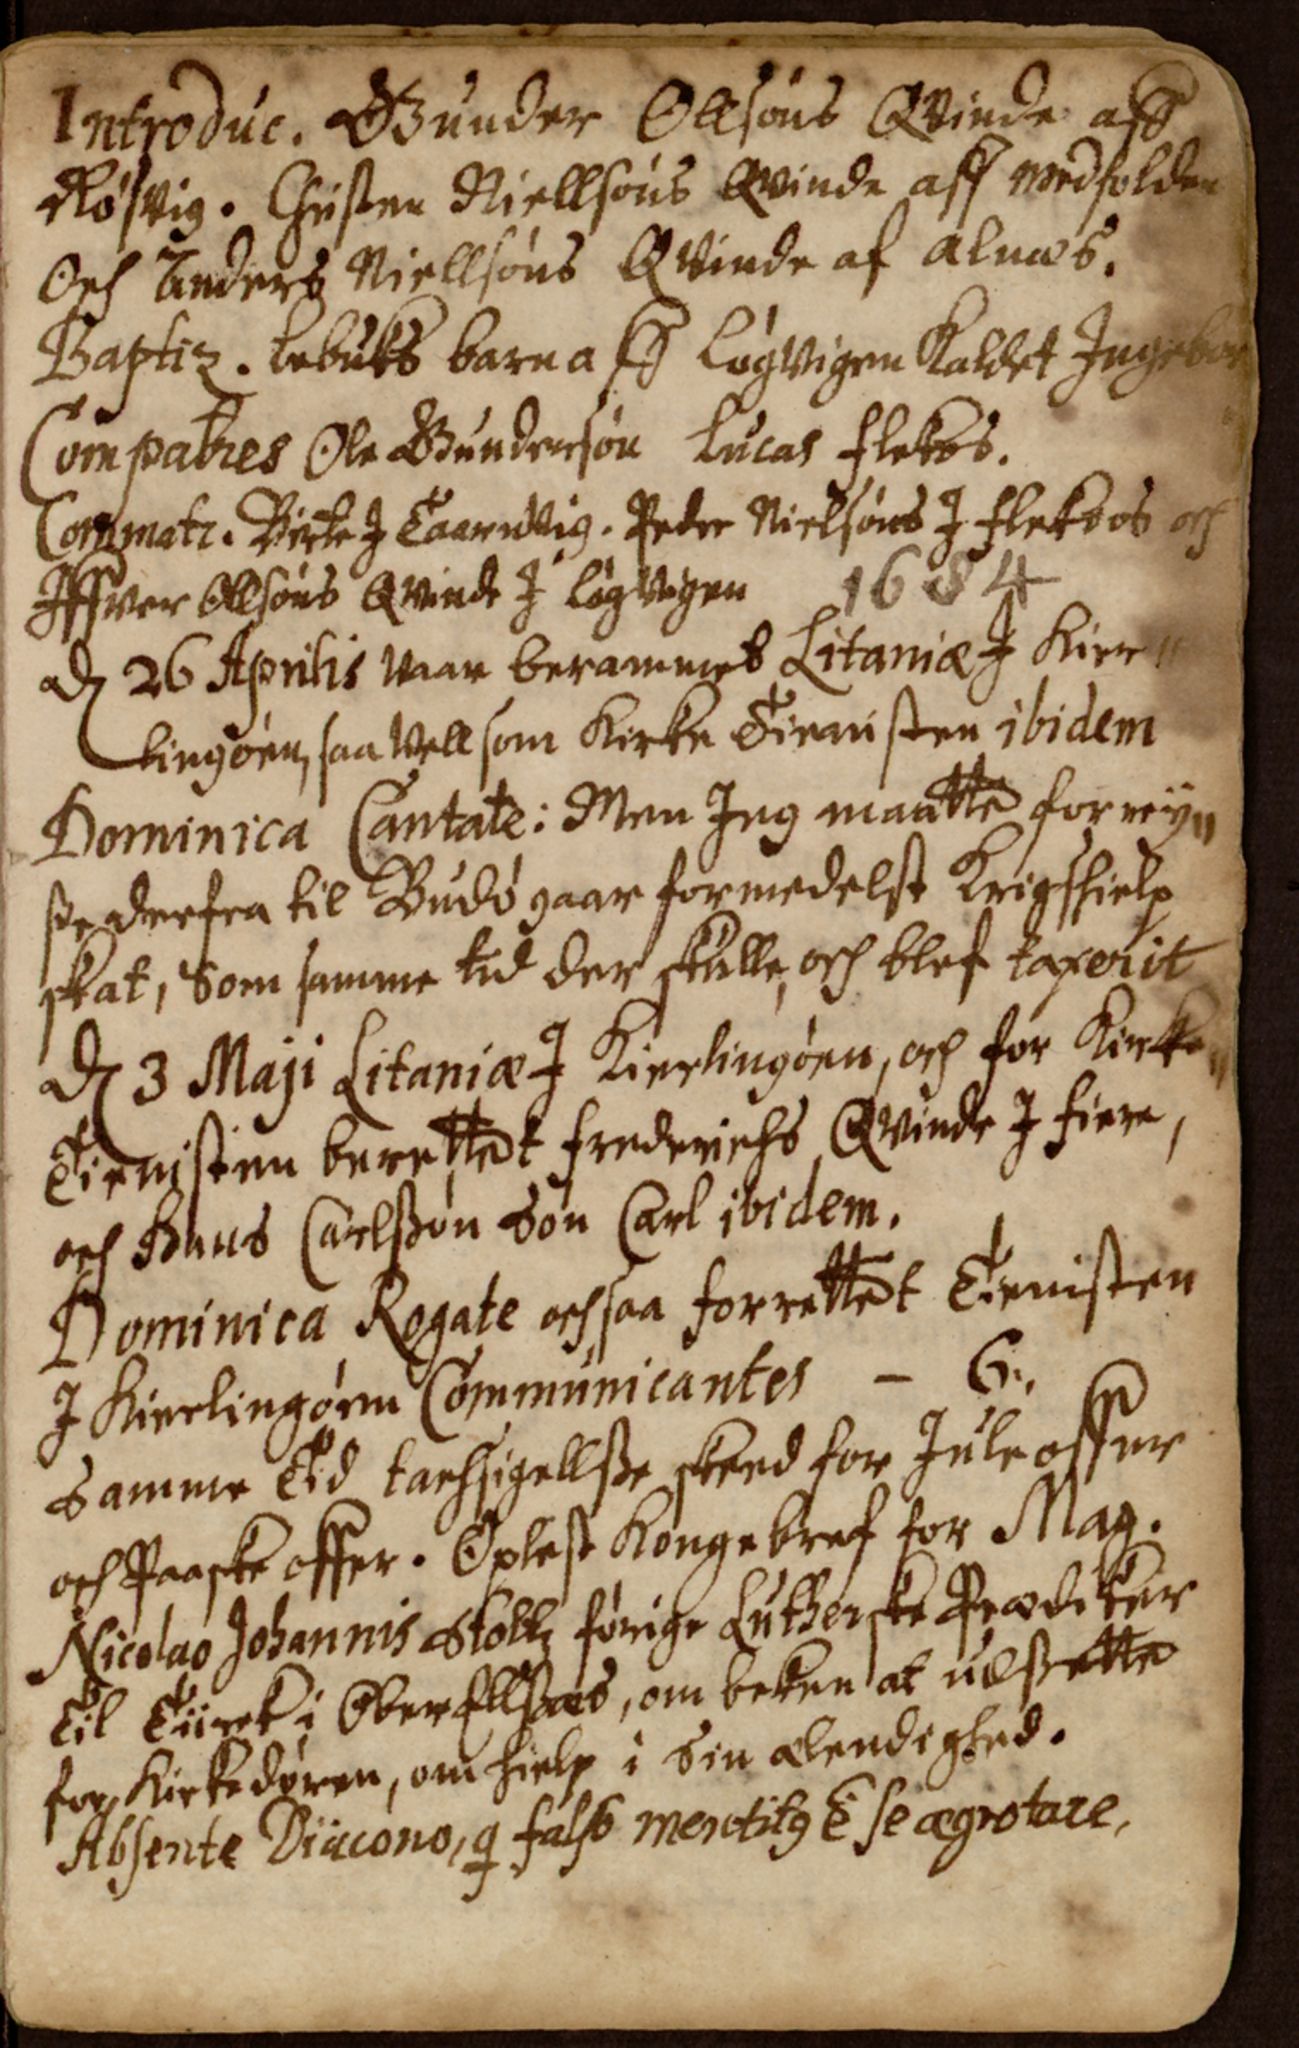 Introduc. Gunder Ollsøns Qvinde aff
Røsvig. Christen Niellsøns Qvinde aff medfolden
Och Anders Niellsøns Qvinde af alnæs.
Baptiz. barn aff Løgvigen Kaldet Ingebor
Compatres Ole Gundersøn Lucas flekøs.
Commatr. Birte J Taarnvig. Peder Nielsøns J flekøs och
Iffver Ollsøns Qvinde J Løgvigen 1684
d 26 Aprilis vaar berammet Litaniæ J Kier„
lingøen, saa vell som Kirke Tienisten ibidem
Dominica Cantate: Men Jeg maatte forrey„
sse derfra til Budøgaar formedelst Krigshielp
skat, som samme tid der skulle, och blef taxerit
d 3 Maji Litaniæ J Kierlingøen, och for Kirke„
Tienisten berettet frederichs Qvinde J fiere,
och Hans Carlssøn Søn Carl ibidem.
Dominica Rogate ochsaa forrettet Tienisten
J Kierlingøen Communicantes – 6.
Samme Tid tachsigellsse skeed for Jule offer
och Paaske offer. Oplest Kongebref for Mag.
Nicolao Johannis Stoltz forige Lutherske Prædiker
Til Tiirek i Ober Ellssas, om beken at udssette
for Kirkedøren, om hielp i sin elendighed.
Absente Diacono, q falso mentitq E se ægrotare.